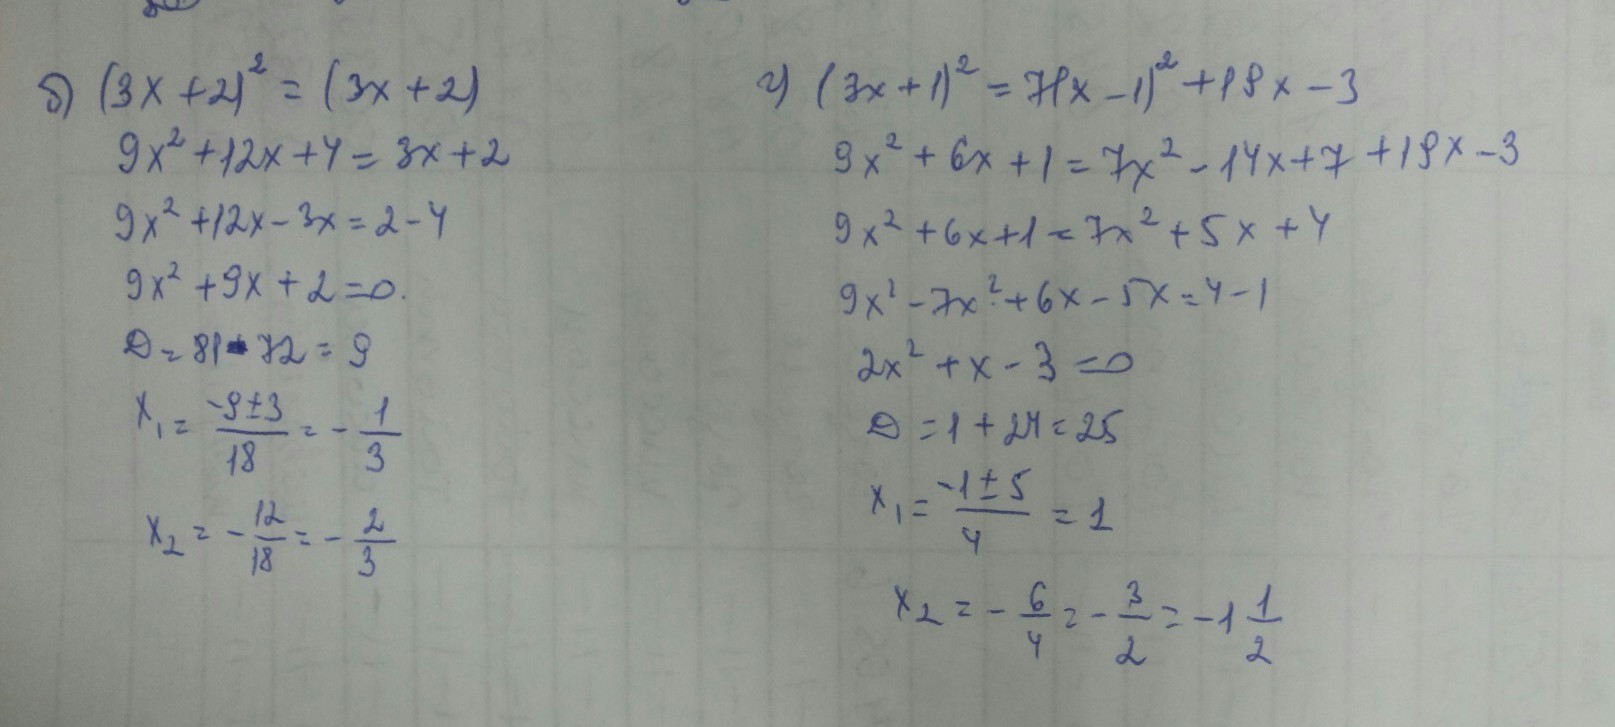 б) (3x+2)² = (3x+2)
9x²+12x+4=3x+2
9x²+12x-3x=2-4
9x²+9x+2=0.
D=81-72=9
x₁=\frac{-9±3}{18}=-\frac{1}{3}
x₂=-\frac{12}{18}=-\frac{2}{3}
г) (3x+1)²=7(x-1)²+19x-3
9x²+6x+1=7x²-14x+7+19x-3
9x²+6x+1=7x²+5x+4
9x²-7x²+6x-5x=4-1
2x²+x-3=0
D=1+24=25
x₁=\frac{-1±5}{4}=1
x₂=-\frac{6}{4}=-\frac{3}{2}=-1\frac{1}{2}